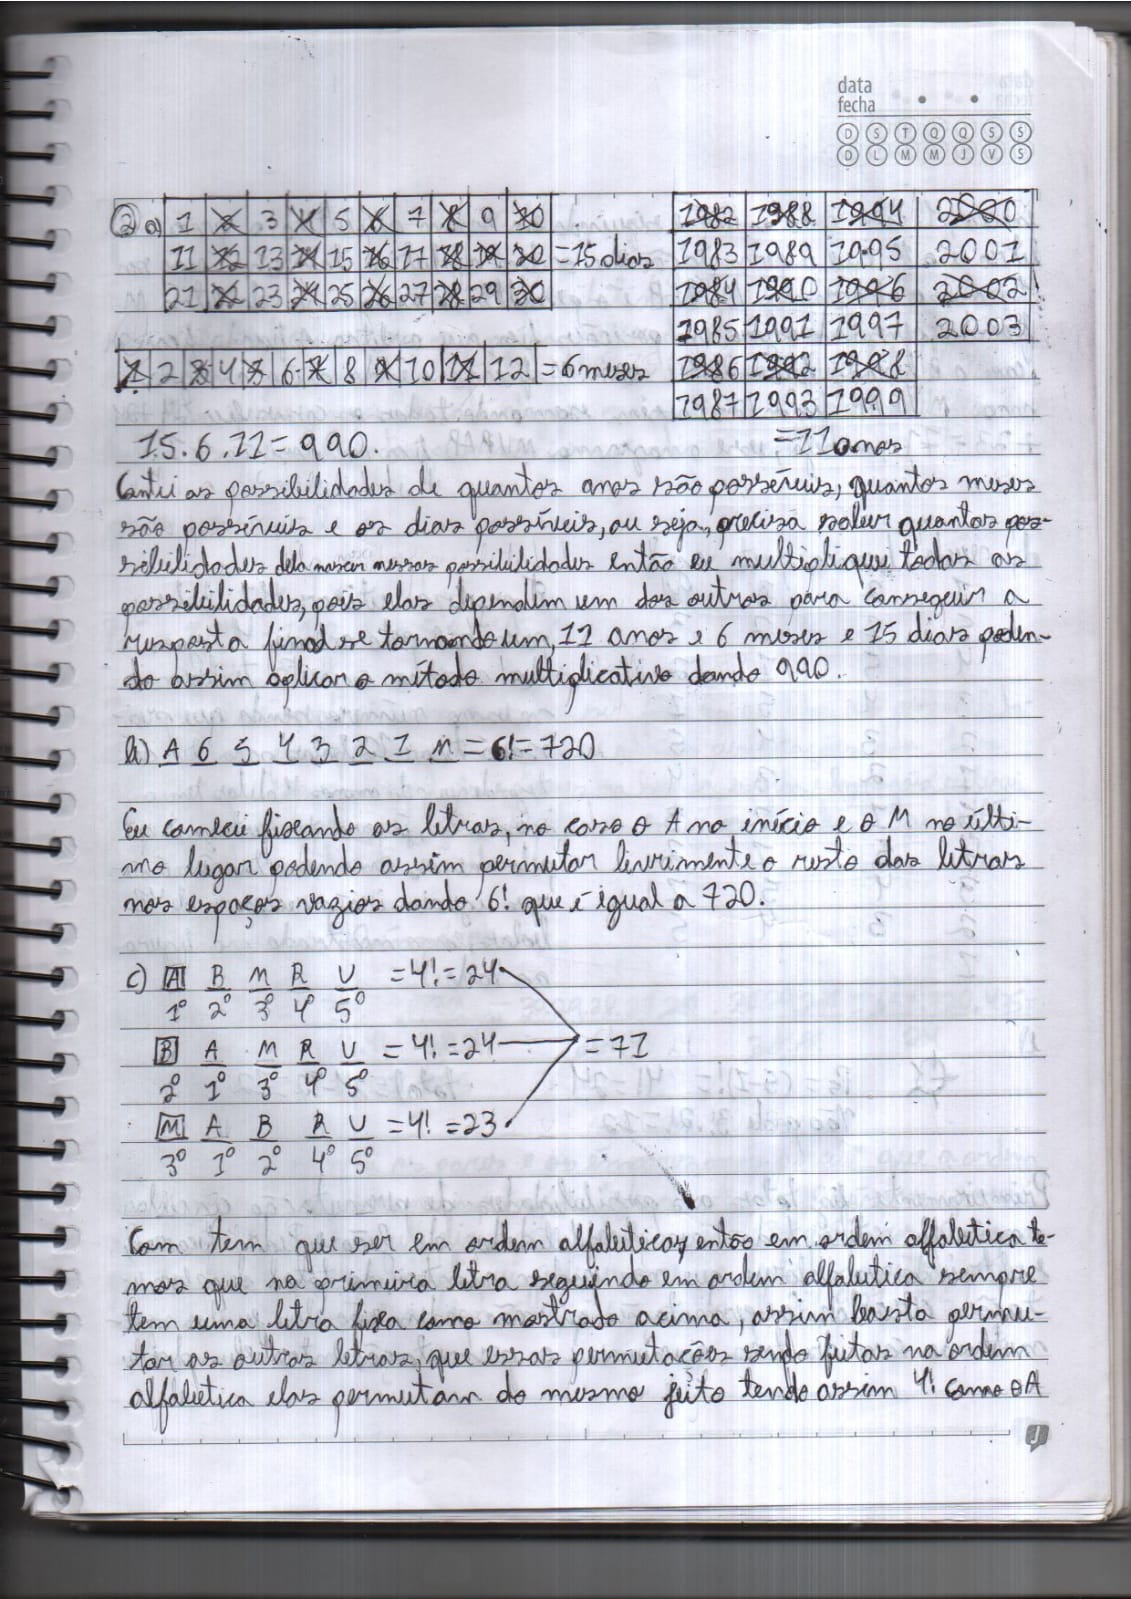 data
fecha
D S T Q Q S S
D L M M J V S
② a) 1 2 3 4 5 6 7 8 9 10
11 12 13 14 15 16 17 18 19 20 = 15 dias
21 22 23 24 25 26 27 28 29 30
1 2 3 4 5 6 7 8 9 10 11 12 = 6 meses
1982 1988 1994 2000
1983 1989 1995 2001
1984 1990 1996 2002
1985 1991 1997 2003
1986 1992 1998
1987 1993 1999
= 11 anos
15.6.11 = 990.
Contei as possibilidades de quantos anos são possíveis, quantos meses
são possíveis e os dias possíveis, ou seja, precisa saber quantas pos-
sibilidades dela nascer nessas possibilidades então eu multipliquei todas as
possibilidades, pois elas dependem um dos outros para conseguir a
resposta final se tornando um, 11 anos e 6 meses e 15 dias poden-
do assim aplicar o método multiplicativo dando 990.
b) A 6 5 4 3 2 1 M = 6! = 720
Eu comecei fixando as letras, no caso o A no início e o M no últi-
mo lugar podendo assim permutar livrimente o resto das letras
nos espaços vazios dando 6! que é igual a 720.
c) A B M R U = 4! = 24
1º 2º 3º 4º 5º
B A M R U = 4! = 24 = 71
2º 1º 3º 4º 5º
M A B R U = 4! = 23
3º 1º 2º 4º 5º
Com tem que ser em ordem alfabética, então em ordem alfabética te-
mos que na primeira letra seguindo em ordem alfabetica sempre
tem uma letra fixa como mostrado acima, assim basta permu-
tar as outras letras, que essas permutações sendo feitas na ordem
alfabetica elas permutam do mesmo jeito tendo assim 4! como o A